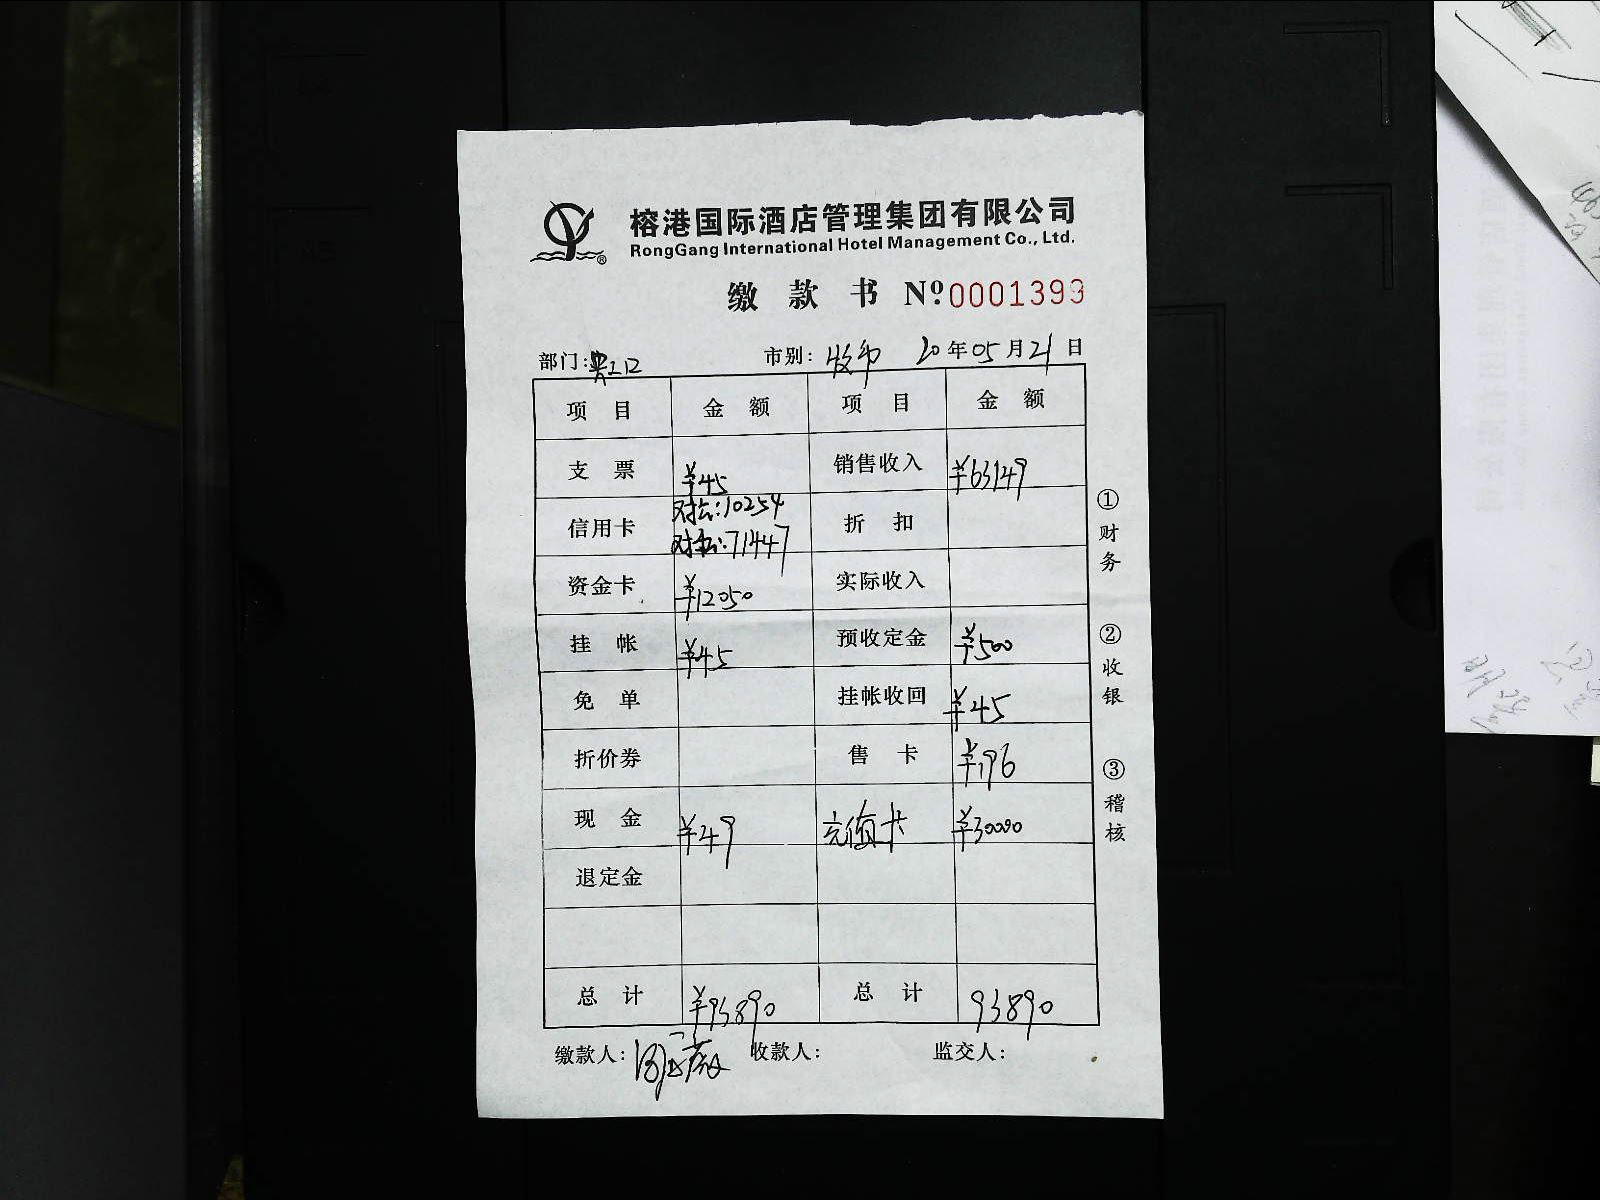 榕港国际酒店管理集团有限公司
RongGang International Hotel Management Co., Ltd.
缴 款 书 Nº 0001399
部门: 市别: 20年05月21日
项 目 金 额 项 目 金 额
支 票 ¥45 销售收入 ¥63149
信用卡 对公:10254 对私:71447 折 扣
资金卡 ¥12050 实际收入
挂 帐 ¥45 预收定金 ¥500
免 单 挂帐收回 ¥45
折价券 售 卡 ¥196
现 金 ¥49 充值卡 ¥30000
退定金
总 计 ¥93890 总 计 93890
缴款人: 收款人: 监交人:
①财务
②收银
③稽核